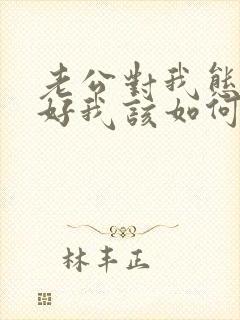 老公對我態
好我該如何
林丰正